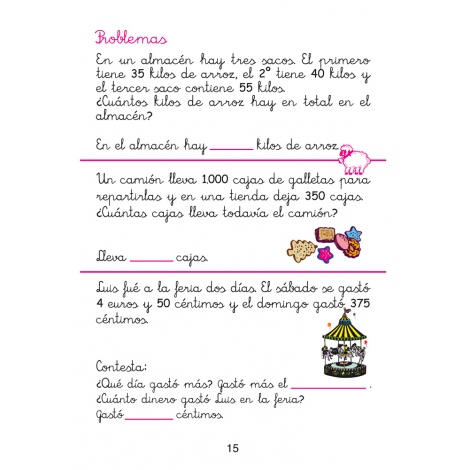 Problemas
En un almacén hay tres sacos. El primero
tiene 35 kilos de arroz, el 2º tiene 40 kilos y
el tercer saco contiene 55 kilos.
¿Cuántos kilos de arroz hay en total en el
almacén?
En el almacén hay ________ kilos de arroz.
Un camión lleva 1.000 cajas de galletas para
repartirlas y en una tienda deja 350 cajas.
¿Cuántas cajas lleva todavía el camión?
Lleva ________ cajas.
Luis fué a la feria dos días. El sábado se gastó
4 euros y 50 céntimos y el domingo gastó 375
céntimos.
Contesta:
¿Qué día gastó más? Gastó más el ______________ .
¿Cuánto dinero gastó Luis en la feria?
Gastó ________ céntimos.
15